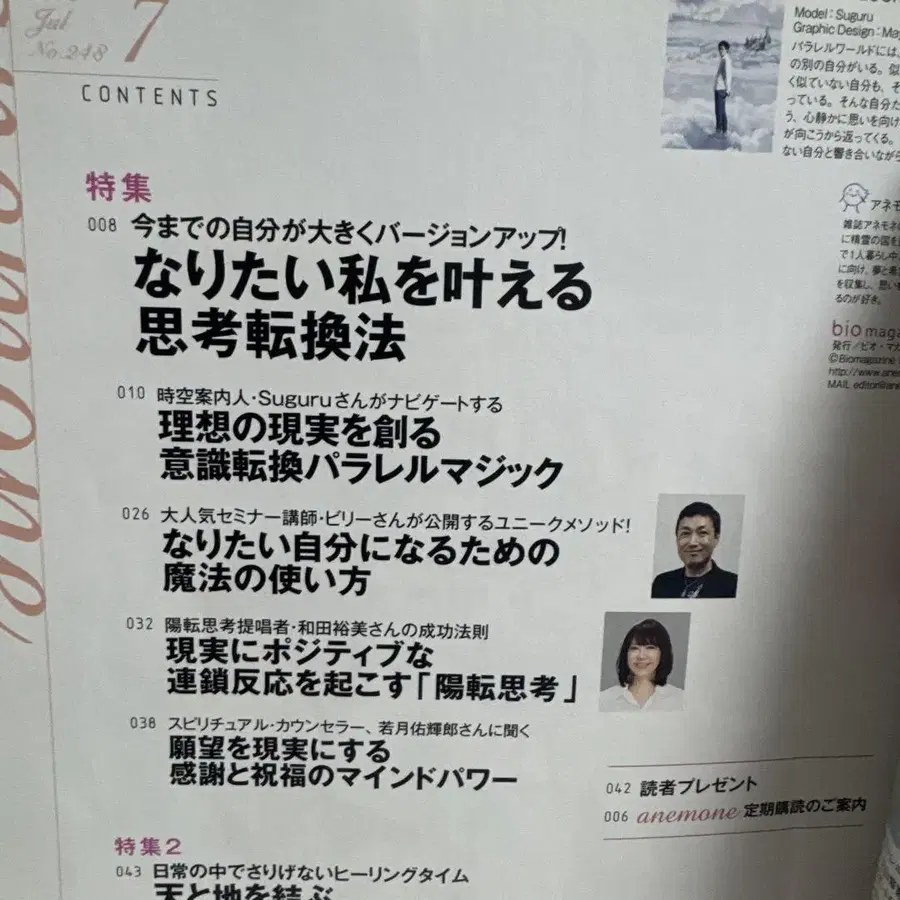 Jul
No.248
7
CONTENTS
特集
008 今までの自分が大きくバージョンアップ!
なりたい私を叶える
思考転換法
010 時空案内人・Suguruさんがナビゲートする
理想の現実を創る
意識転換パラレルマジック
026 大人気セミナー講師・ビリーさんが公開するユニークメソッド!
なりたい自分になるための
魔法の使い方
032 陽転思考提唱者・和田裕美さんの成功法則
現実にポジティブな
連鎖反応を起こす「陽転思考」
038 スピリチュアル・カウンセラー、若月佑輝郎さんに聞く
願望を現実にする
感謝と祝福のマインドパワー
042 読者プレゼント
006 anemone 定期購読のご案内
特集2
043 日常の中でさりげないヒーリングタイム
天と地を結ぶ
Model:Suguru
Graphic Design:
パラレルワールドには、
の別の自分がいる。似
く似ていない自分も、そ
っている。そんな自分た
う、心静かに思いを向け
が向こうから返ってくる。
ない自分と響き合いながら
アネモ
雑誌アネモネの
に精霊の国を
で1人暮らし中
に向け、夢と希
を収集し、思い
るのが好き。
bio maga
発行/ビオ・マガ
©Biomagazine
http://www.ane
MAIL editor@an